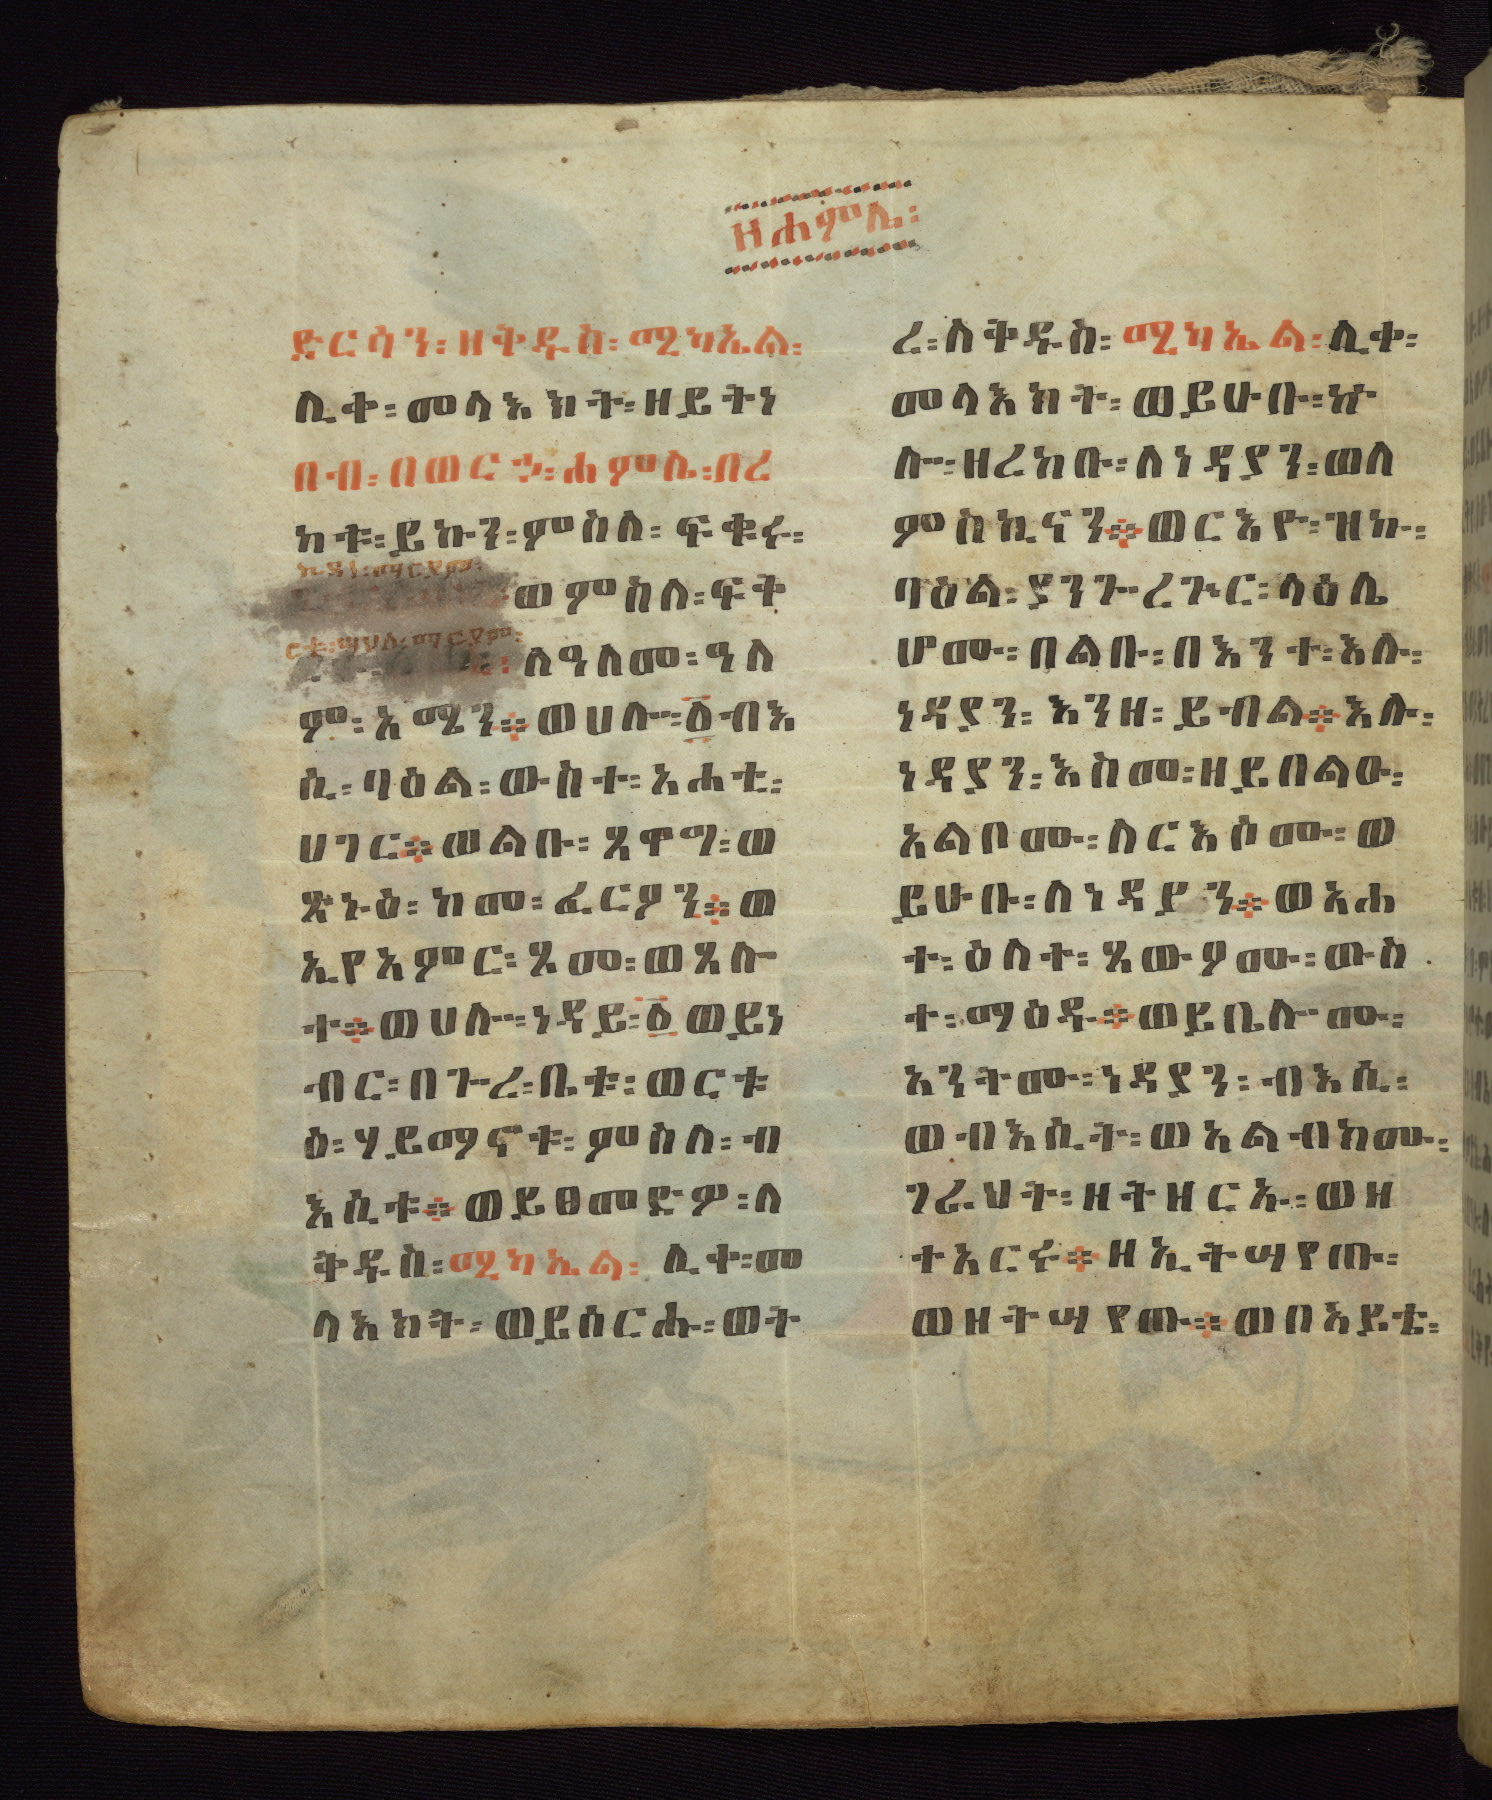 ዘሐምሌ፡
ድርሳን፡ ዘቅዱስ፡ ሚካኤል፡
ሊቀ፡ መላእክት፡ ዘይትነ
በብ፡ በወርኃ፡ ሐምሌ፡ በረ
ከቱ፡ ይኩን፡ ምስለ፡ ፍቁሩ፡
ወምስለ፡ ፍቅ
ርቱ፡ ሣህለ፡ ማርያም፡
ለዓለመ፡ ዓለ
ም፡ አሜን። ወሀሎ፡ ፩ ብእ
ሲ፡ ባዕል፡ ውስተ፡ አሐቲ፡
ሀገር። ወልቡ፡ ጺዋግ፡ ወ
ጽኑዕ፡ ከመ፡ ፈርዖን። ወ
ኢየአምር፡ ጿመ፡ ወጸሎ
ተ። ወሀሎ፡ ነዳይ፡ ፩ ወይነ
ብር፡ በጉረ፡ ቤቱ፡ ወርቱ
ዕ፡ ሃይማኖቱ፡ ምስለ፡ ብ
እሲቱ። ወይፀመድዎ፡ ለ
ቅዱስ፡ ሚካኤል፡ ሊቀ፡ መ
ላእክት፡ ወይሰርሑ፡ ወት
ረ፡ ለቅዱስ፡ ሚካኤል፡ ሊቀ፡
መላእክት፡ ወይሁቡ፡ ኵ
ሎ፡ ዘረከቡ፡ ለነዳያን፡ ወለ
ምስኪናን። ወርእዮ፡ ዝኩ፡
ባዕል፡ ያንጐረጕር፡ ላዕሌ
ሆሙ፡ በልቡ፡ በእንተ፡ እሉ፡
ነዳያን፡ እንዘ፡ ይብል። እሉ፡
ነዳያን፡ እስመ፡ ዘይበልዑ፡
አልቦሙ፡ ለርእሶሙ፡ ወ
ይሁቡ፡ ለነዳያን። ወአሐ
ተ፡ ዕለተ፡ ጼውዖሙ፡ ውስ
ተ፡ ማዕዱ። ወይቤሎሙ፡
አንትሙ፡ ነዳያን፡ ብእሲ፡
ወብእሲት፡ ወአልብክሙ፡
ገራህት፡ ዘትዘርኡ፡ ወዘ
ተአርሩ። ዘኢትሣየጡ፡
ወዘትሣየጡ። ወበአይቴ፡